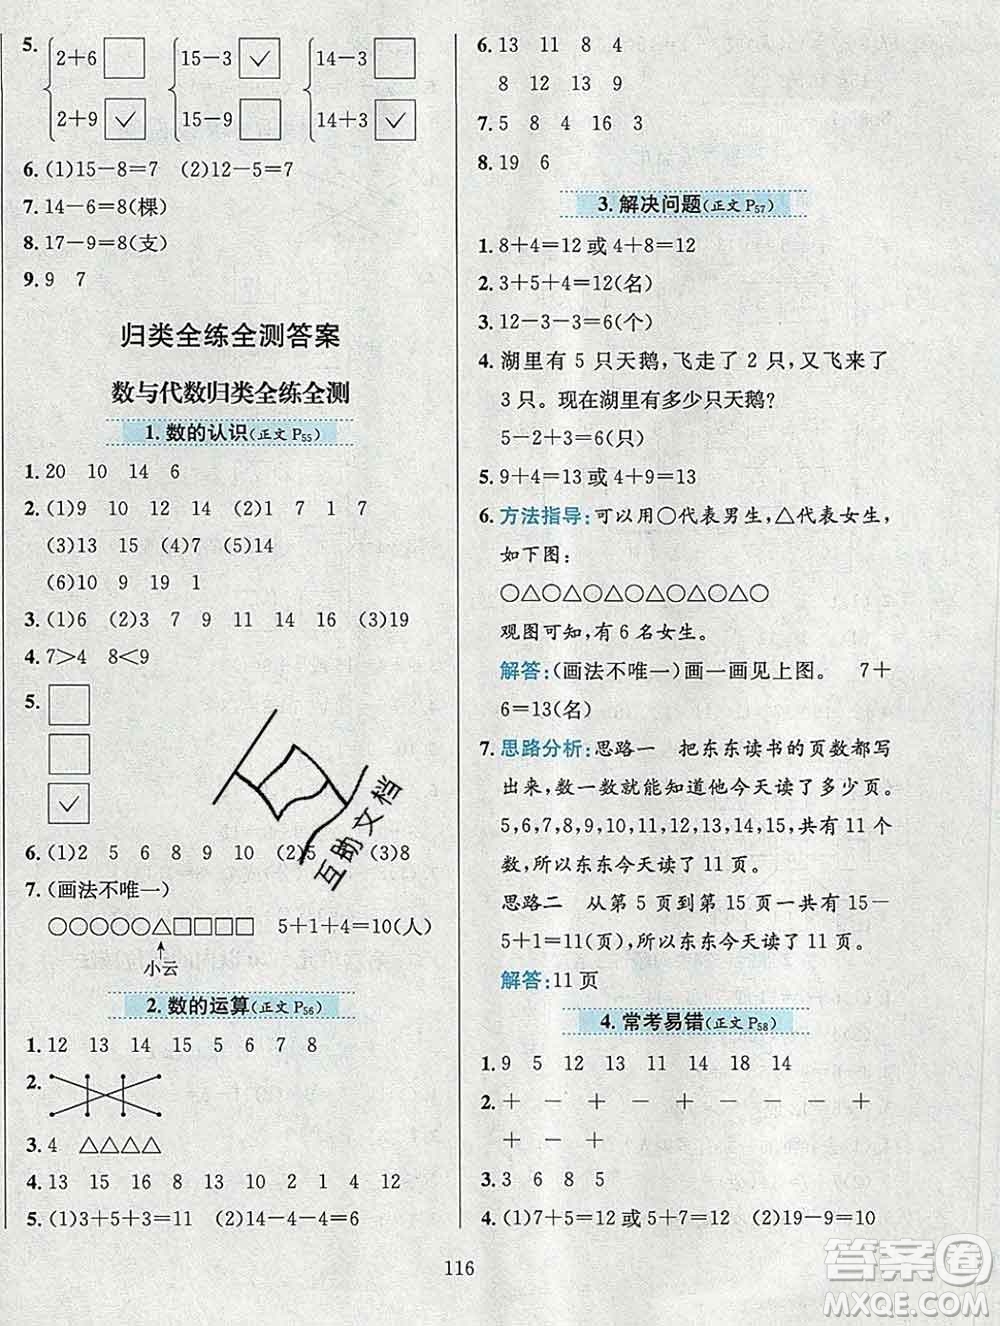 5. 2+6 □ 15-3 ☑ 14-3 □
2+9 ☑ 15-9 □ 14+3 ☑
6. (1)15-8=7 (2)12-5=7
7. 14-6=8(棵)
8. 17-9=8(支)
9. 9 7
归类全练全测答案
数与代数归类全练全测
1. 数的认识(正文 P55)
1. 20 10 14 6
2. (1)9 10 12 14 (2)1 7 1 7
(3)13 15 (4)7 (5)14
(6)10 9 19 1
3. (1)6 (2)3 7 9 11 14 16 (3)19
4. 7>4 8<9
5. □
□
☑
6. (1)2 5 6 8 9 10 (2)5 (3)8
7. (画法不唯一)
○○○○○○△□□□□ 5+1+4=10(人)
小云
2. 数的运算(正文 P56)
1. 12 13 14 15 5 6 7 8
2.
3. 4 △△△△
4. 13 15 16 8 13 10 2 1 4 12
5. (1)3+5+3=11 (2)14-4-4=6
6. 13 11 8 4
8 12 13 9
7. 5 8 4 16 3
8. 19 6
3. 解决问题(正文 P57)
1. 8+4=12 或 4+8=12
2. 3+5+4=12(名)
3. 12-3-3=6(个)
4. 湖里有 5 只天鹅，飞走了 2 只，又飞来了
3 只。现在湖里有多少只天鹅？
5-2+3=6(只)
5. 9+4=13 或 4+9=13
6. 方法指导：可以用○代表男生，△代表女生，
如下图：
○△○△○△○△○△○△○
观图可知，有 6 名女生。
解答：(画法不唯一)画一画见上图。 7+
6=13(名)
7. 思路分析：思路一 把东东读书的页数都写
出来，数一数就能知道他今天读了多少页。
5,6,7,8,9,10,11,12,13,14,15,共有 11 个
数，所以东东今天读了 11 页。
思路二 从第 5 页到第 15 页一共有 15-
5+1=11(页)，所以东东今天读了 11 页。
解答：11 页
4. 常考易错(正文 P58)
1. 9 5 12 13 11 14 18 14
2. + - + - + - + -
+ - + -
3. 3 6 8 5
4. (1)7+5=12 或 5+7=12 (2)19-9=10
116
互助文档
答案圈
MXQE.COM